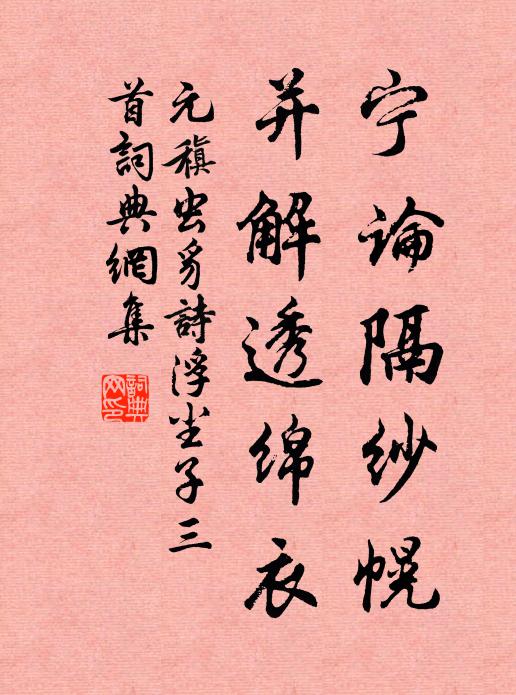 宁论隔纱幌
并解透绵衣
元稹虫豸詩浮尘子三
首詞典網集
詞典网印